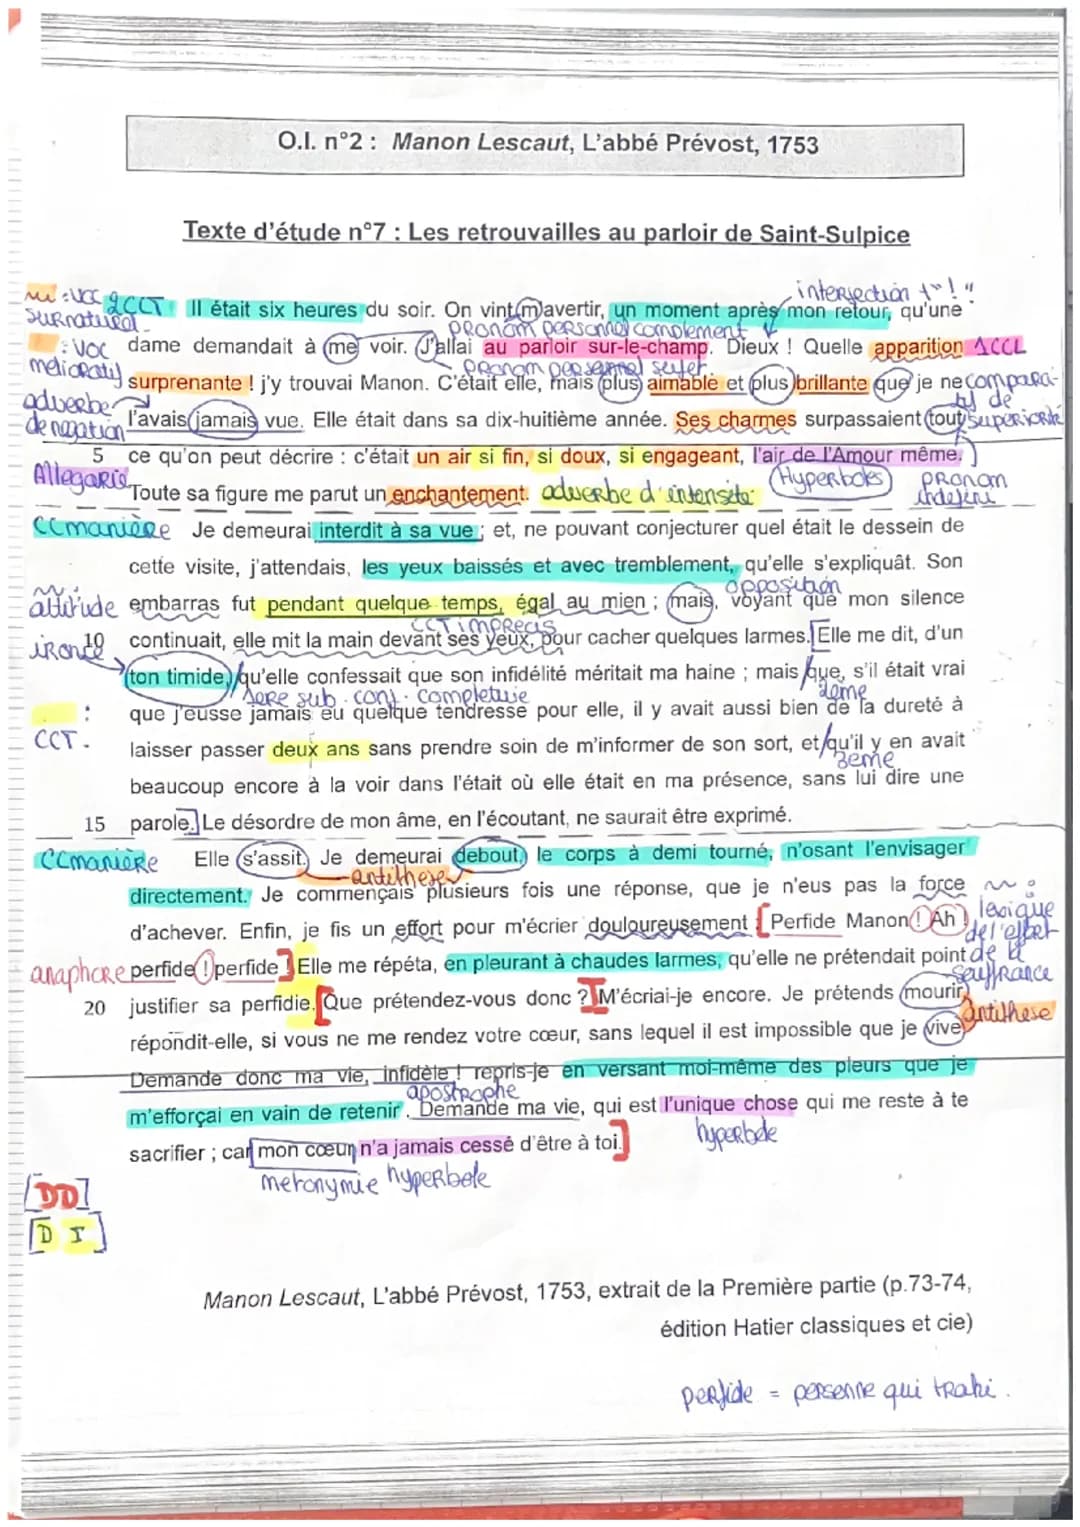 O.I. n°2 : Manon Lescaut, L'abbé Prévost, 1753
Texte d'étude n°7 : Les retrouvailles au parloir de Saint-Sulpice
: voc surnaturel
2CCT
interjection + "!"
Il était six heures du soir. On vint m'avertir, un moment après mon retour, qu'une
pronom personnel complement
: voc melioratif
dame demandait à me voir. J'allai au parloir sur-le-champ. Dieux ! Quelle apparition 1CCL
pronom personnel sujet
surprenante ! j'y trouvai Manon. C'était elle, mais plus aimable et plus brillante que je ne comparatif de supériorité
adverbe de negation
l'avais jamais vue. Elle était dans sa dix-huitième année. Ses charmes surpassaient tout
5 ce qu'on peut décrire : c'était un air si fin, si doux, si engageant, l'air de l'Amour même.
Allegorie
Toute sa figure me parut un enchantement. adverbe d'intensité Hyperboles pronom indefini
CCmanière Je demeurai interdit à sa vue ; et, ne pouvant conjecturer quel était le dessein de
cette visite, j'attendais, les yeux baissés et avec tremblement, qu'elle s'expliquât. Son
opposition
: attitude embarras fut pendant quelque temps, égal au mien ; mais, voyant que mon silence
CCT imprecis
ironie
10 continuait, elle mit la main devant ses yeux, pour cacher quelques larmes. Elle me dit, d'un
ton timide, qu'elle confessait que son infidélité méritait ma haine ; mais que, s'il était vrai
1ere sub. conj. completive 2eme
: CCT.
que j'eusse jamais eu quelque tendresse pour elle, il y avait aussi bien de la dureté à
laisser passer deux ans sans prendre soin de m'informer de son sort, et qu'il y en avait
3eme
beaucoup encore à la voir dans l'état où elle était en ma présence, sans lui dire une
15 parole. Le désordre de mon âme, en l'écoutant, ne saurait être exprimé.
CCmanière Elle s'assit. Je demeurai debout, le corps à demi tourné, n'osant l'envisager
antithese
directement. Je commençais plusieurs fois une réponse, que je n'eus pas la force
: lexique de l'effort de la souffrance
d'achever. Enfin, je fis un effort pour m'écrier douloureusement : Perfide Manon ! Ah !
anaphore perfide ! perfide ! Elle me répéta, en pleurant à chaudes larmes, qu'elle ne prétendait point
20 justifier sa perfidie. Que prétendez-vous donc ? M'écriai-je encore. Je prétends mourir,
antithese
répondit-elle, si vous ne me rendez votre cœur, sans lequel il est impossible que je vive.
Demande donc ma vie, infidèle ! repris-je en versant moi-même des pleurs que je
apostrophe
m'efforçai en vain de retenir. Demande ma vie, qui est l'unique chose qui me reste à te
hyperbole
sacrifier ; car mon cœur n'a jamais cessé d'être à toi.
metonymie hyperbole
[DD]
[D I]
Manon Lescaut, L'abbé Prévost, 1753, extrait de la Première partie (p.73-74,
édition Hatier classiques et cie)
perfide = personne qui trahi.